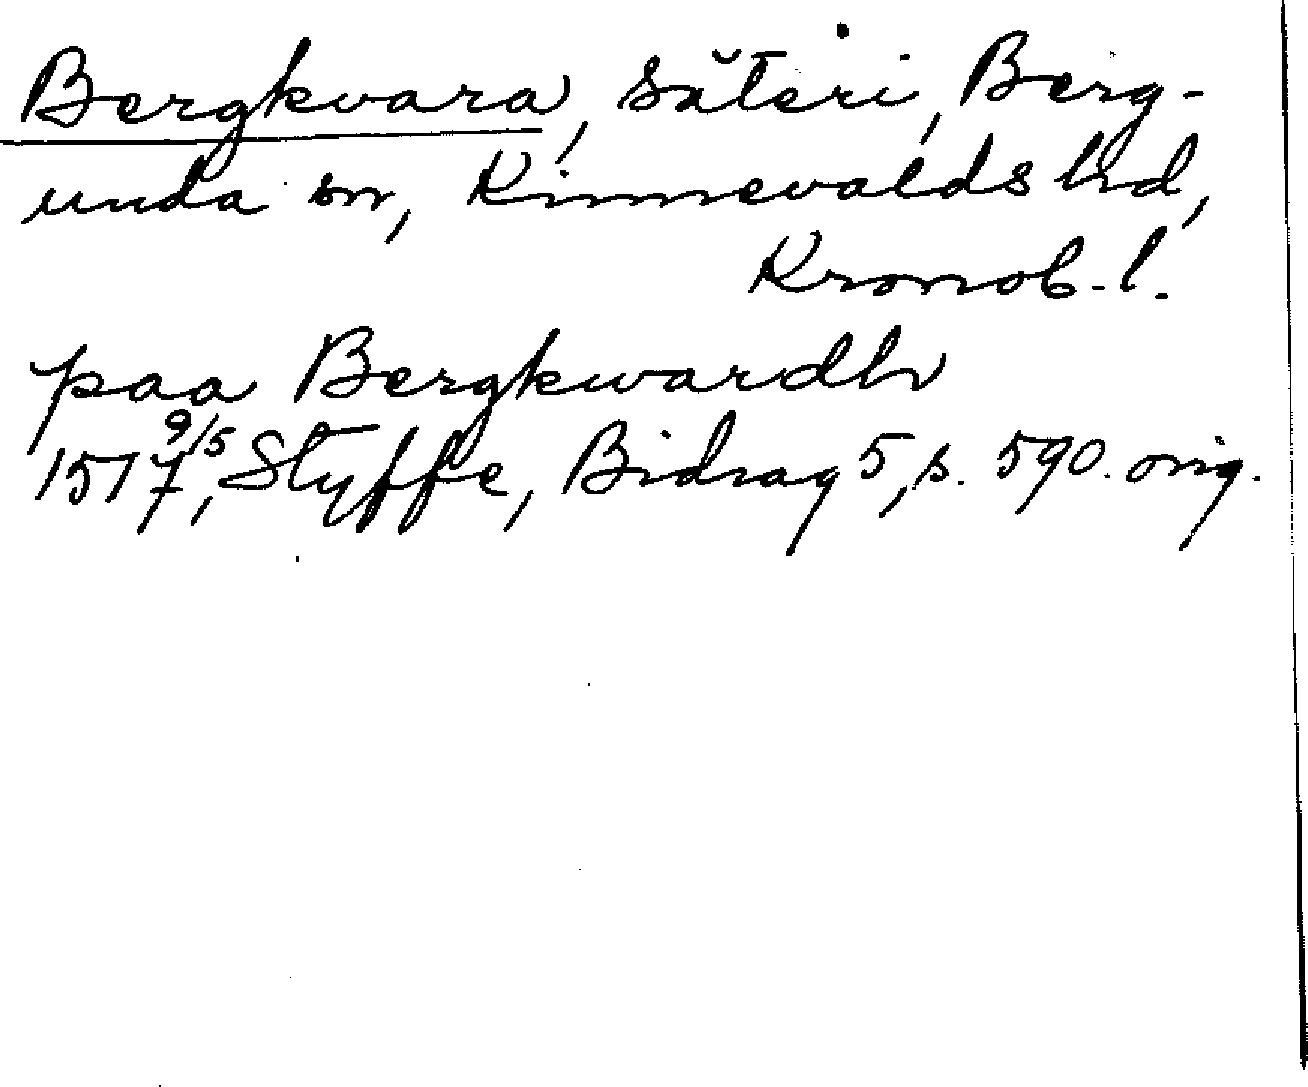 Bergkvara, säteri, Berg-
unda sn, Kinnevalds hd,
Kronob. l.
paa Bergkwardh
1517 9/5, Styffe, Bidrag 5, s. 590. orig.